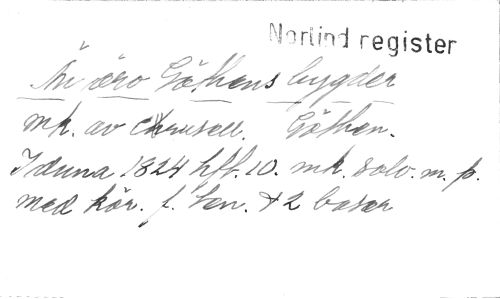 Norlind register
Än äro Göthens bygder
mk. av Chrusell. Göthen.
Iduna 1824 hft. 10. mk. solo. m. p.
med kör. f. ten. + 2 basar